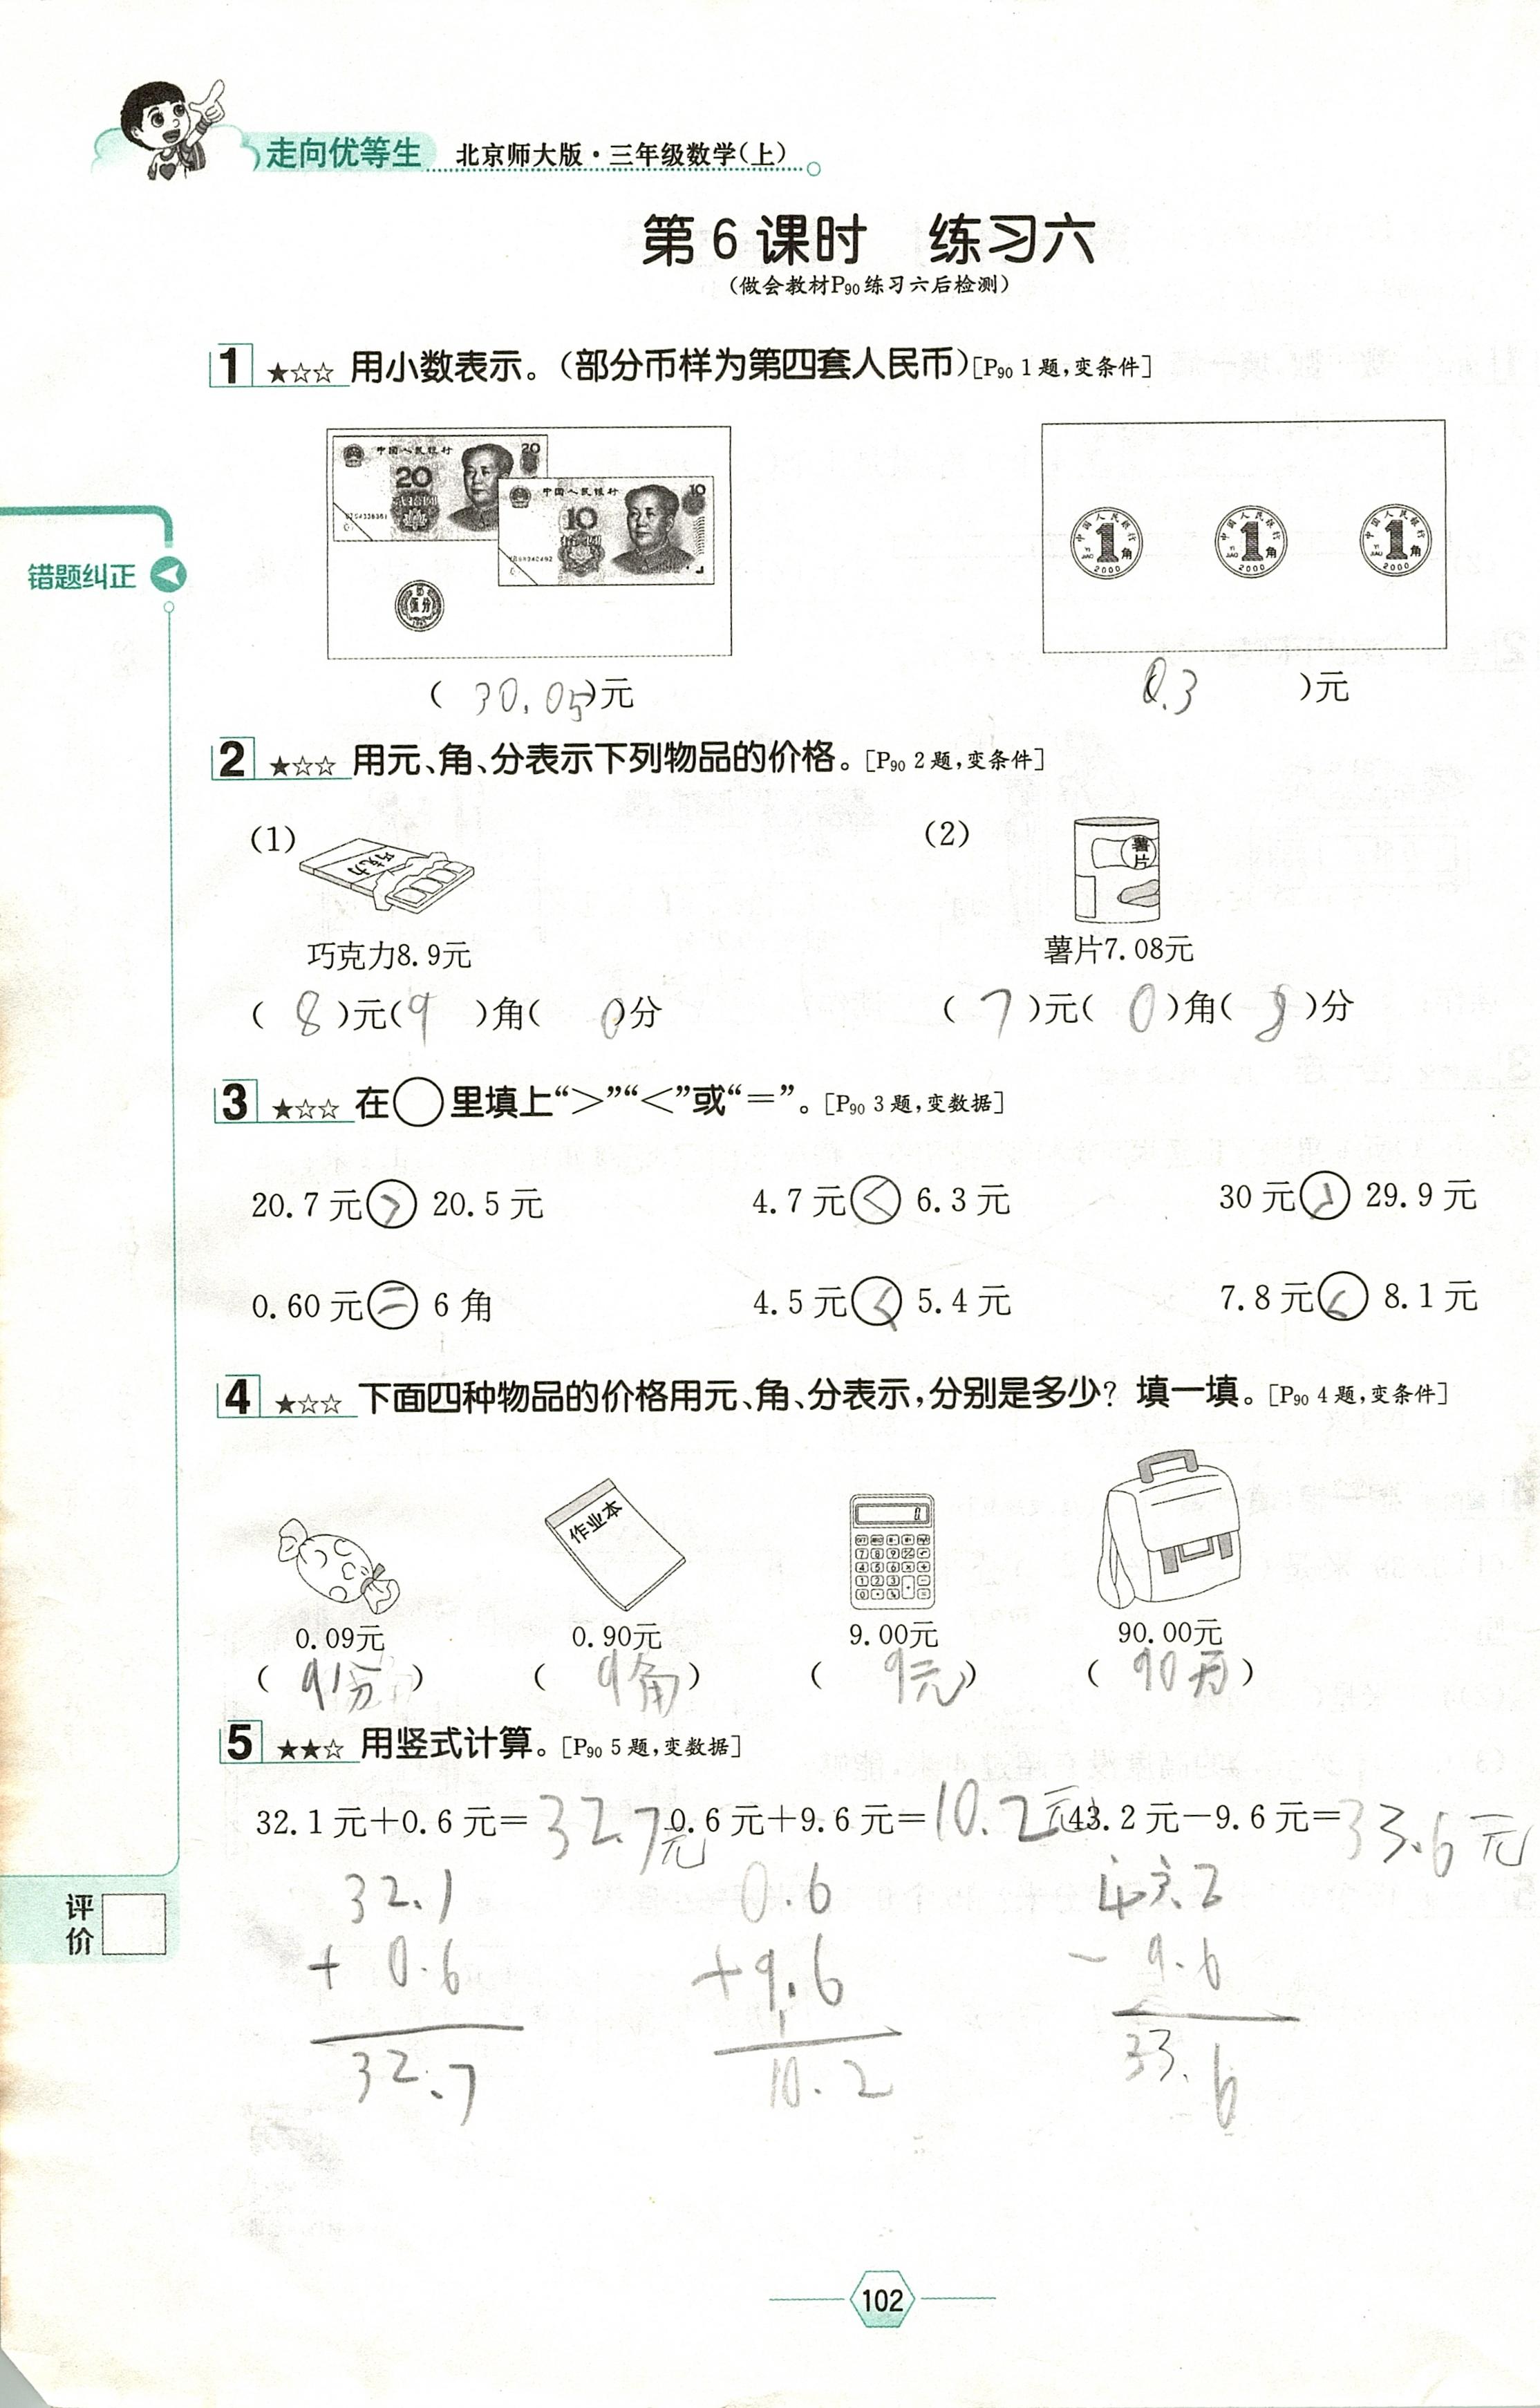 走向优等生 北京师大版·三年级数学(上)
第6课时 练习六
(做会教材P90练习六后检测)
1 ★☆☆ 用小数表示。(部分币样为第四套人民币)[P90 1题,变条件]
中国人民银行 20
20
中国人民银行 10
10
伍分
中国人民银行 1角 YI JIAO 2000
中国人民银行 1角 YI JIAO 2000
中国人民银行 1角 YI JIAO 2000
错题纠正
( 30.05 )元 0.3 )元
2 ★☆☆ 用元、角、分表示下列物品的价格。[P90 2题,变条件]
(1) 巧克力 (2) 薯片
巧克力8.9元 薯片7.08元
( 8 )元( 9 )角( 0 )分 ( 7 )元( 0 )角( 8 )分
3 ★☆☆ 在○里填上“>”“<”或“=”。[P90 3题,变数据]
20.7元 > 20.5元 4.7元 < 6.3元 30元 > 29.9元
0.60元 = 6角 4.5元 < 5.4元 7.8元 < 8.1元
4 ★☆☆ 下面四种物品的价格用元、角、分表示,分别是多少? 填一填。[P90 4题,变条件]
作业本
0.09元 0.90元 9.00元 90.00元
( 9分 ) ( 9角 ) ( 9元 ) ( 90元 )
5 ★★☆ 用竖式计算。[P90 5题,变数据]
32.1元+0.6元= 32.7元 0.6元+9.6元= 10.2元 43.2元-9.6元= 33.6元
32.1 0.6 43.2
+ 0.6 + 9.6 - 9.6
32.7 10.2 33.6
评价
102